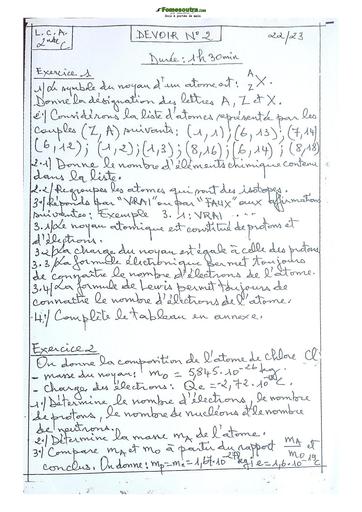 Fomesoutra.com
L.C.A.
2nde C
DEVOIR N°2
22/23
Durée: 1h30min
Exercice 1
1°/ Le symbole du noyau d'un atome est: A Z X.
Donne la désignation des lettres A, Z et X.
2°/ Considérons la liste d'atomes représenté par les
couples (Z, A) suivants: (1,1); (6,13); (7,14)
(6,12); (1,2); (1,3); (8,16); (6,14); (8,18)
2.1/ Donne le nombre d'éléments chimique contenu
dans la liste.
2.2/ Regroupes les atomes qui sont des isotopes.
3°/ Réponds par "VRAI" ou par "FAUX" aux affirmations
suivantes: Exemple 3.1: VRAI ...
3.1/ Le noyau atomique est constitué de protons et
d'électrons.
3.2/ La charge du noyau est égale à celle des protons
3.3/ La formule électronique permet toujours
de connaître le nombre d'électrons de l'atome.
3.4/ La formule de Lewis permet toujours de
connaître le nombre d'électrons de l'atome.
4°/ Complète le tableau en annexe.
Exercice 2
On donne la composition de l'atome de chlore Cl
- masse du noyau: m0 = 5,845.10-26 kg
- charge des électrons: Qe = -2,72.10-18 C.
1°/ Détermine le nombre d'électrons, le nombre
de protons, le nombre de nucléons et le nombre
de neutrons.
2°/ Détermine la masse mA de l'atome.
3°/ Compare mA et m0 à partir du rapport mA/m0 et
conclus. On donne: mp=mn=1,67.10-27kg; e=1,6.10-19C